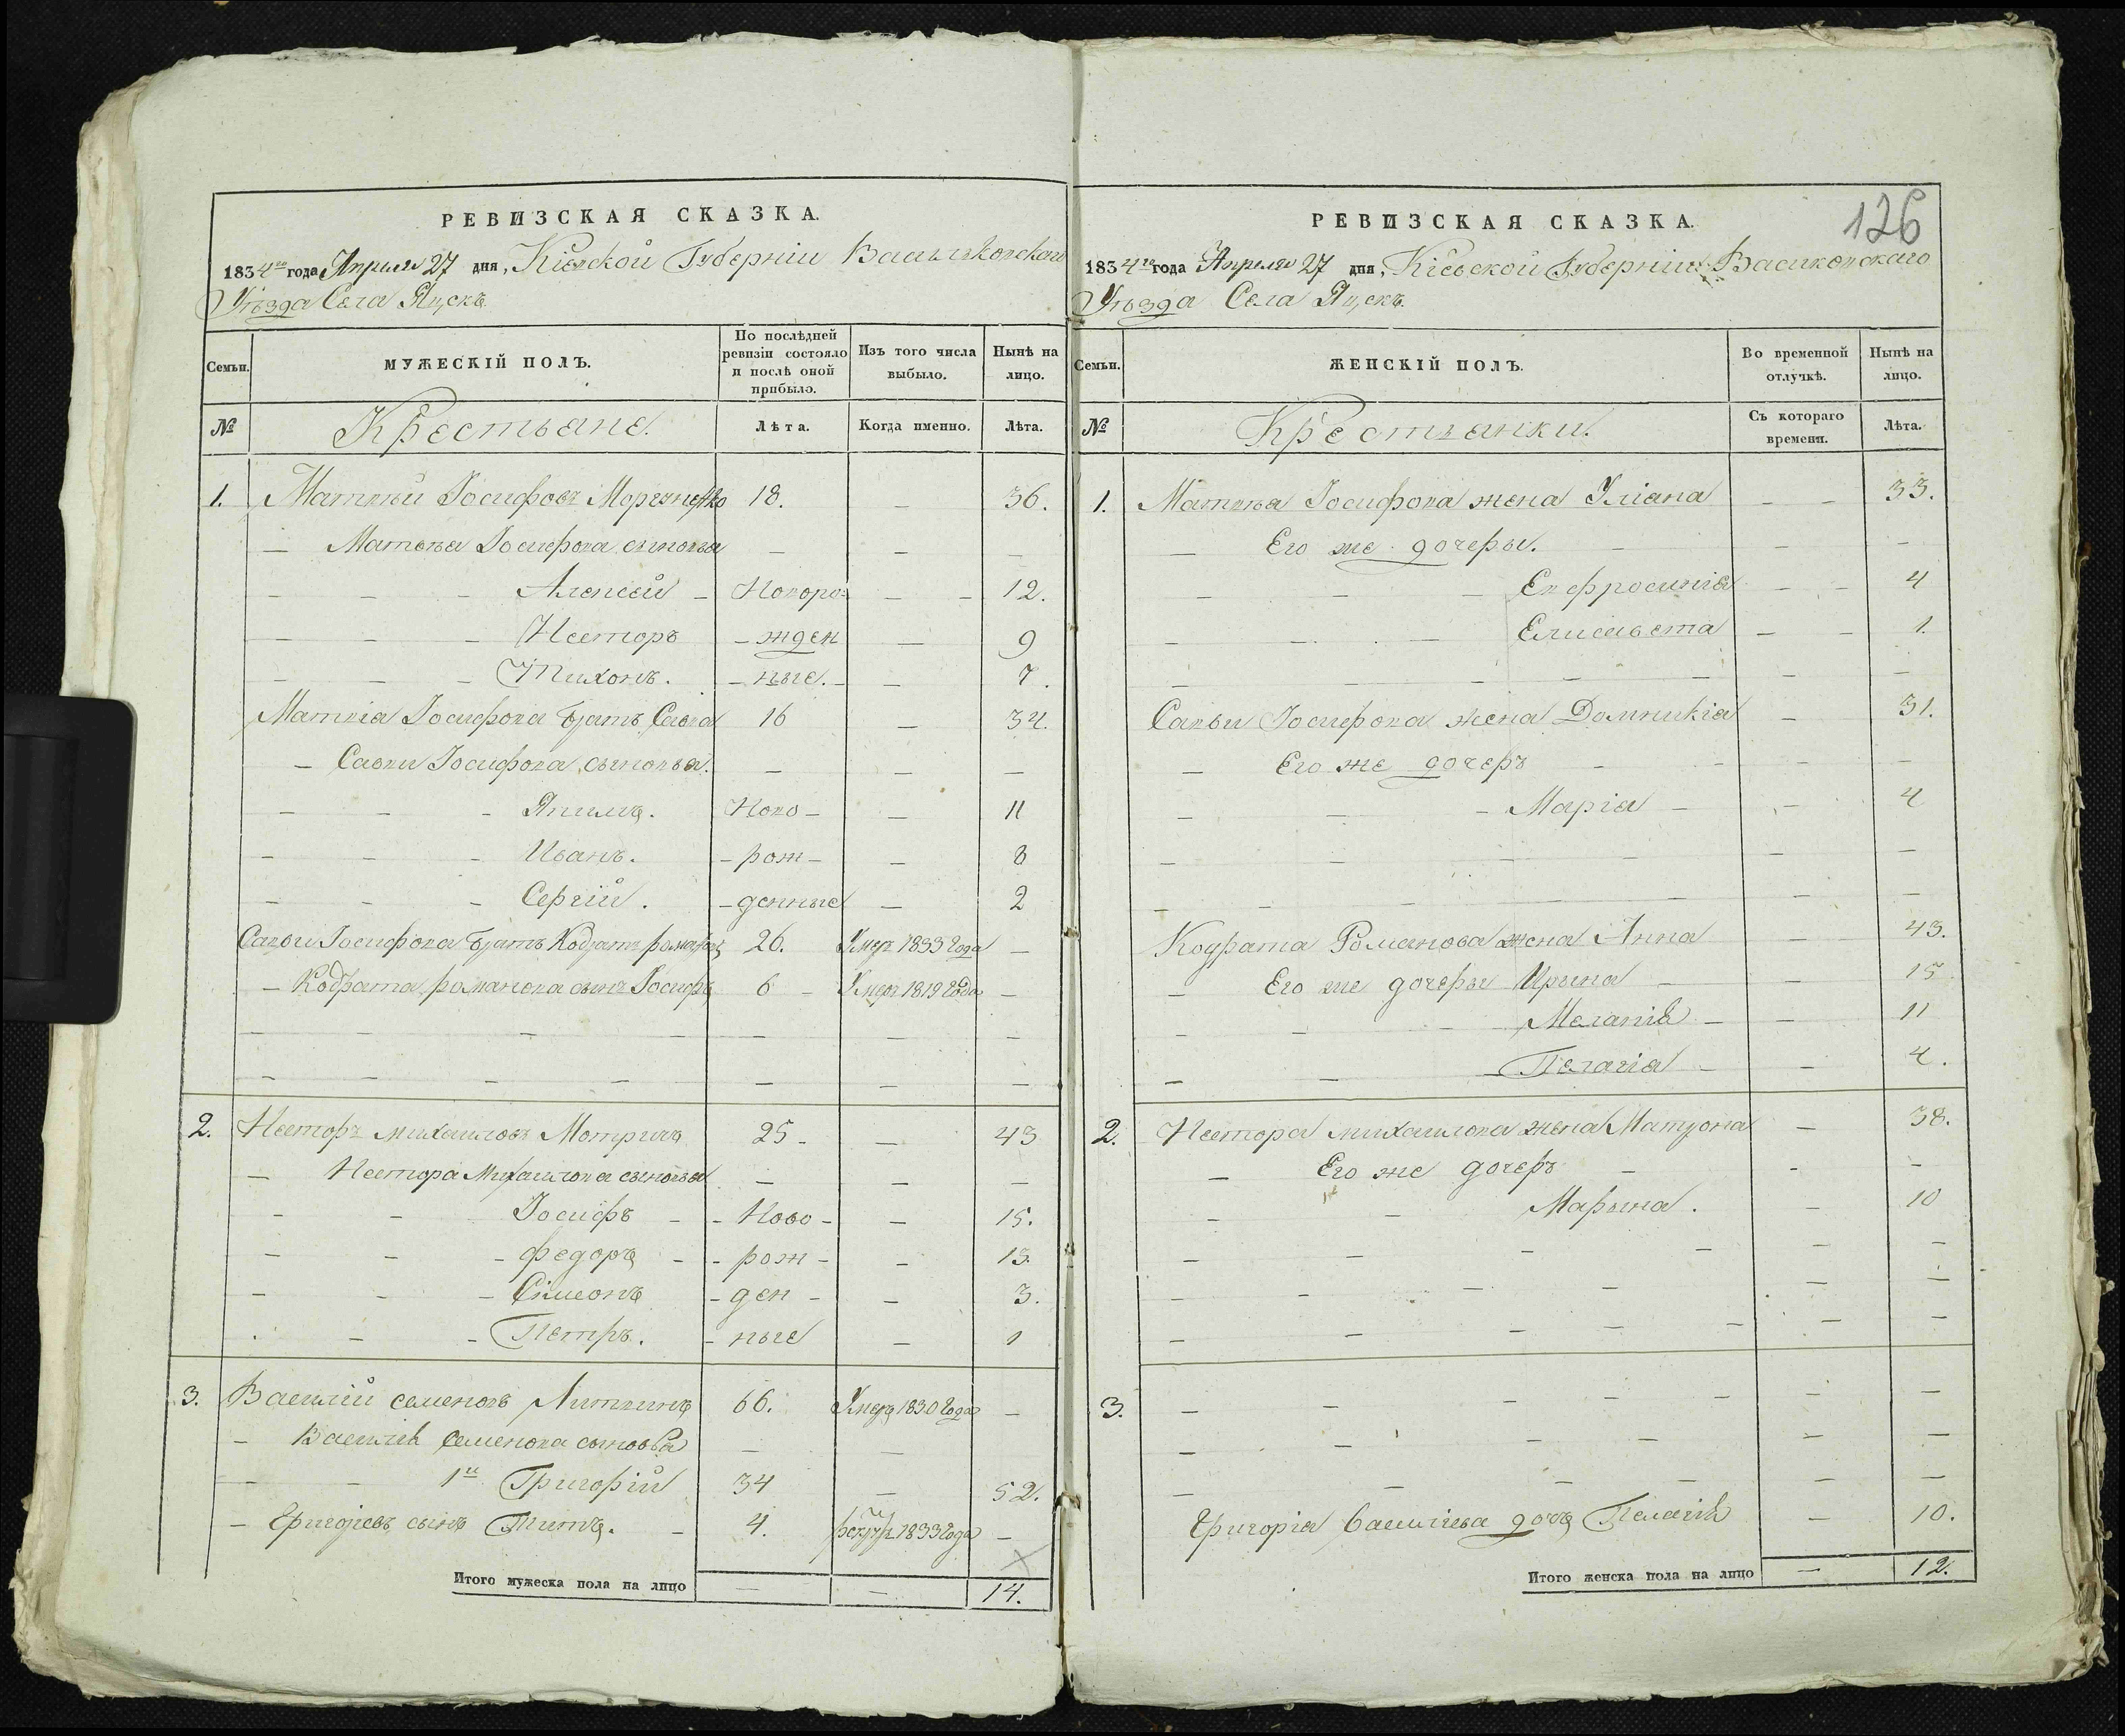 РЕВИЗСКАЯ СКАЗКА.
1834го года Апреля 27 дня, Кіевской Губерніи Васильковскаго
Уѣзда Села Яцскъ.
Семьи.
МУЖЕСКІЙ ПОЛЪ.
По послѣдней ревизіи состояло и послѣ оной прибыло.
Изъ того числа выбыло.
Нынѣ на лицо.
№
Крестьяне.
Лѣта.
Когда именно.
Лѣта.
1. Матвѣй Іосифовъ 18. — 36.
— Матвѣя Іосифова сыновья — — —
— — — Алексей — Новоро= — — 12.
— — — Несторъ — жден — 9
— — — Тихонъ. — ные. — — 7.
Матвіа Іосифова братъ Савва 16 — 34.
— Савви Іосифова сыновья. — — —
— — — Якимъ. Ново — — 11
— — — Иванъ. — рож — — 8
— — — Сергій. — денные — 2
Савви Іосифова братъ Кодратъ романовъ 26. Умеръ 1833 года —
— Кодрата романова сынъ Іосифъ 6 — Умеръ 1819 года —
2. Несторъ михаиловъ 25 — — 43
— Нестора Михаилова сыновья — — —
— — Іосифъ — — Ново — — 15.
— — — федоръ — — рож — — 13.
— — — Симеонъ — ден — — 3.
— — Петръ. — ные — 1
3. Василій семеновъ 66. Умеръ 1830 года —
— Василія Семенова сыновья — —
— — 1й Григорій 34 — 52.
— Григоріевъ сынъ Титъ. — 4. рекрут 1833 года —
Итого мужеска пола на лицо — — 14.
126
РЕВИЗСКАЯ СКАЗКА.
1834го года Апреля 27 дня, Кіевской Губерніи Василковскаго
Уѣзда Села Яцскъ.
Семьи.
ЖЕНСКІЙ ПОЛЪ.
Во временной отлучкѣ.
Нынѣ на лицо.
№
Крестьянки.
Съ котораго времени.
Лѣта.
1. Матвѣя Іосифова жена Уліана — — 33.
— Его же дочеры. — — —
— — — Евфросинія — — 4
— — — Елисавета — — 1.
Савви Іосифова жена Домникія — 31.
— Его же дочеръ — — —
— — — Марія — — 4
Кодрата Романова жена Анна — 43.
— Его же дочеры Ирина — — 15
— — — Меланія — — 11
— — — Пелагія — — 4.
2. Нестора михаилова жена Матрона — 38.
— Его же дочеръ — — —
— — Марына. — 10
3.
Григорія Василіева дочь Пелагія — 10.
Итого женска пола на лицо — 12.